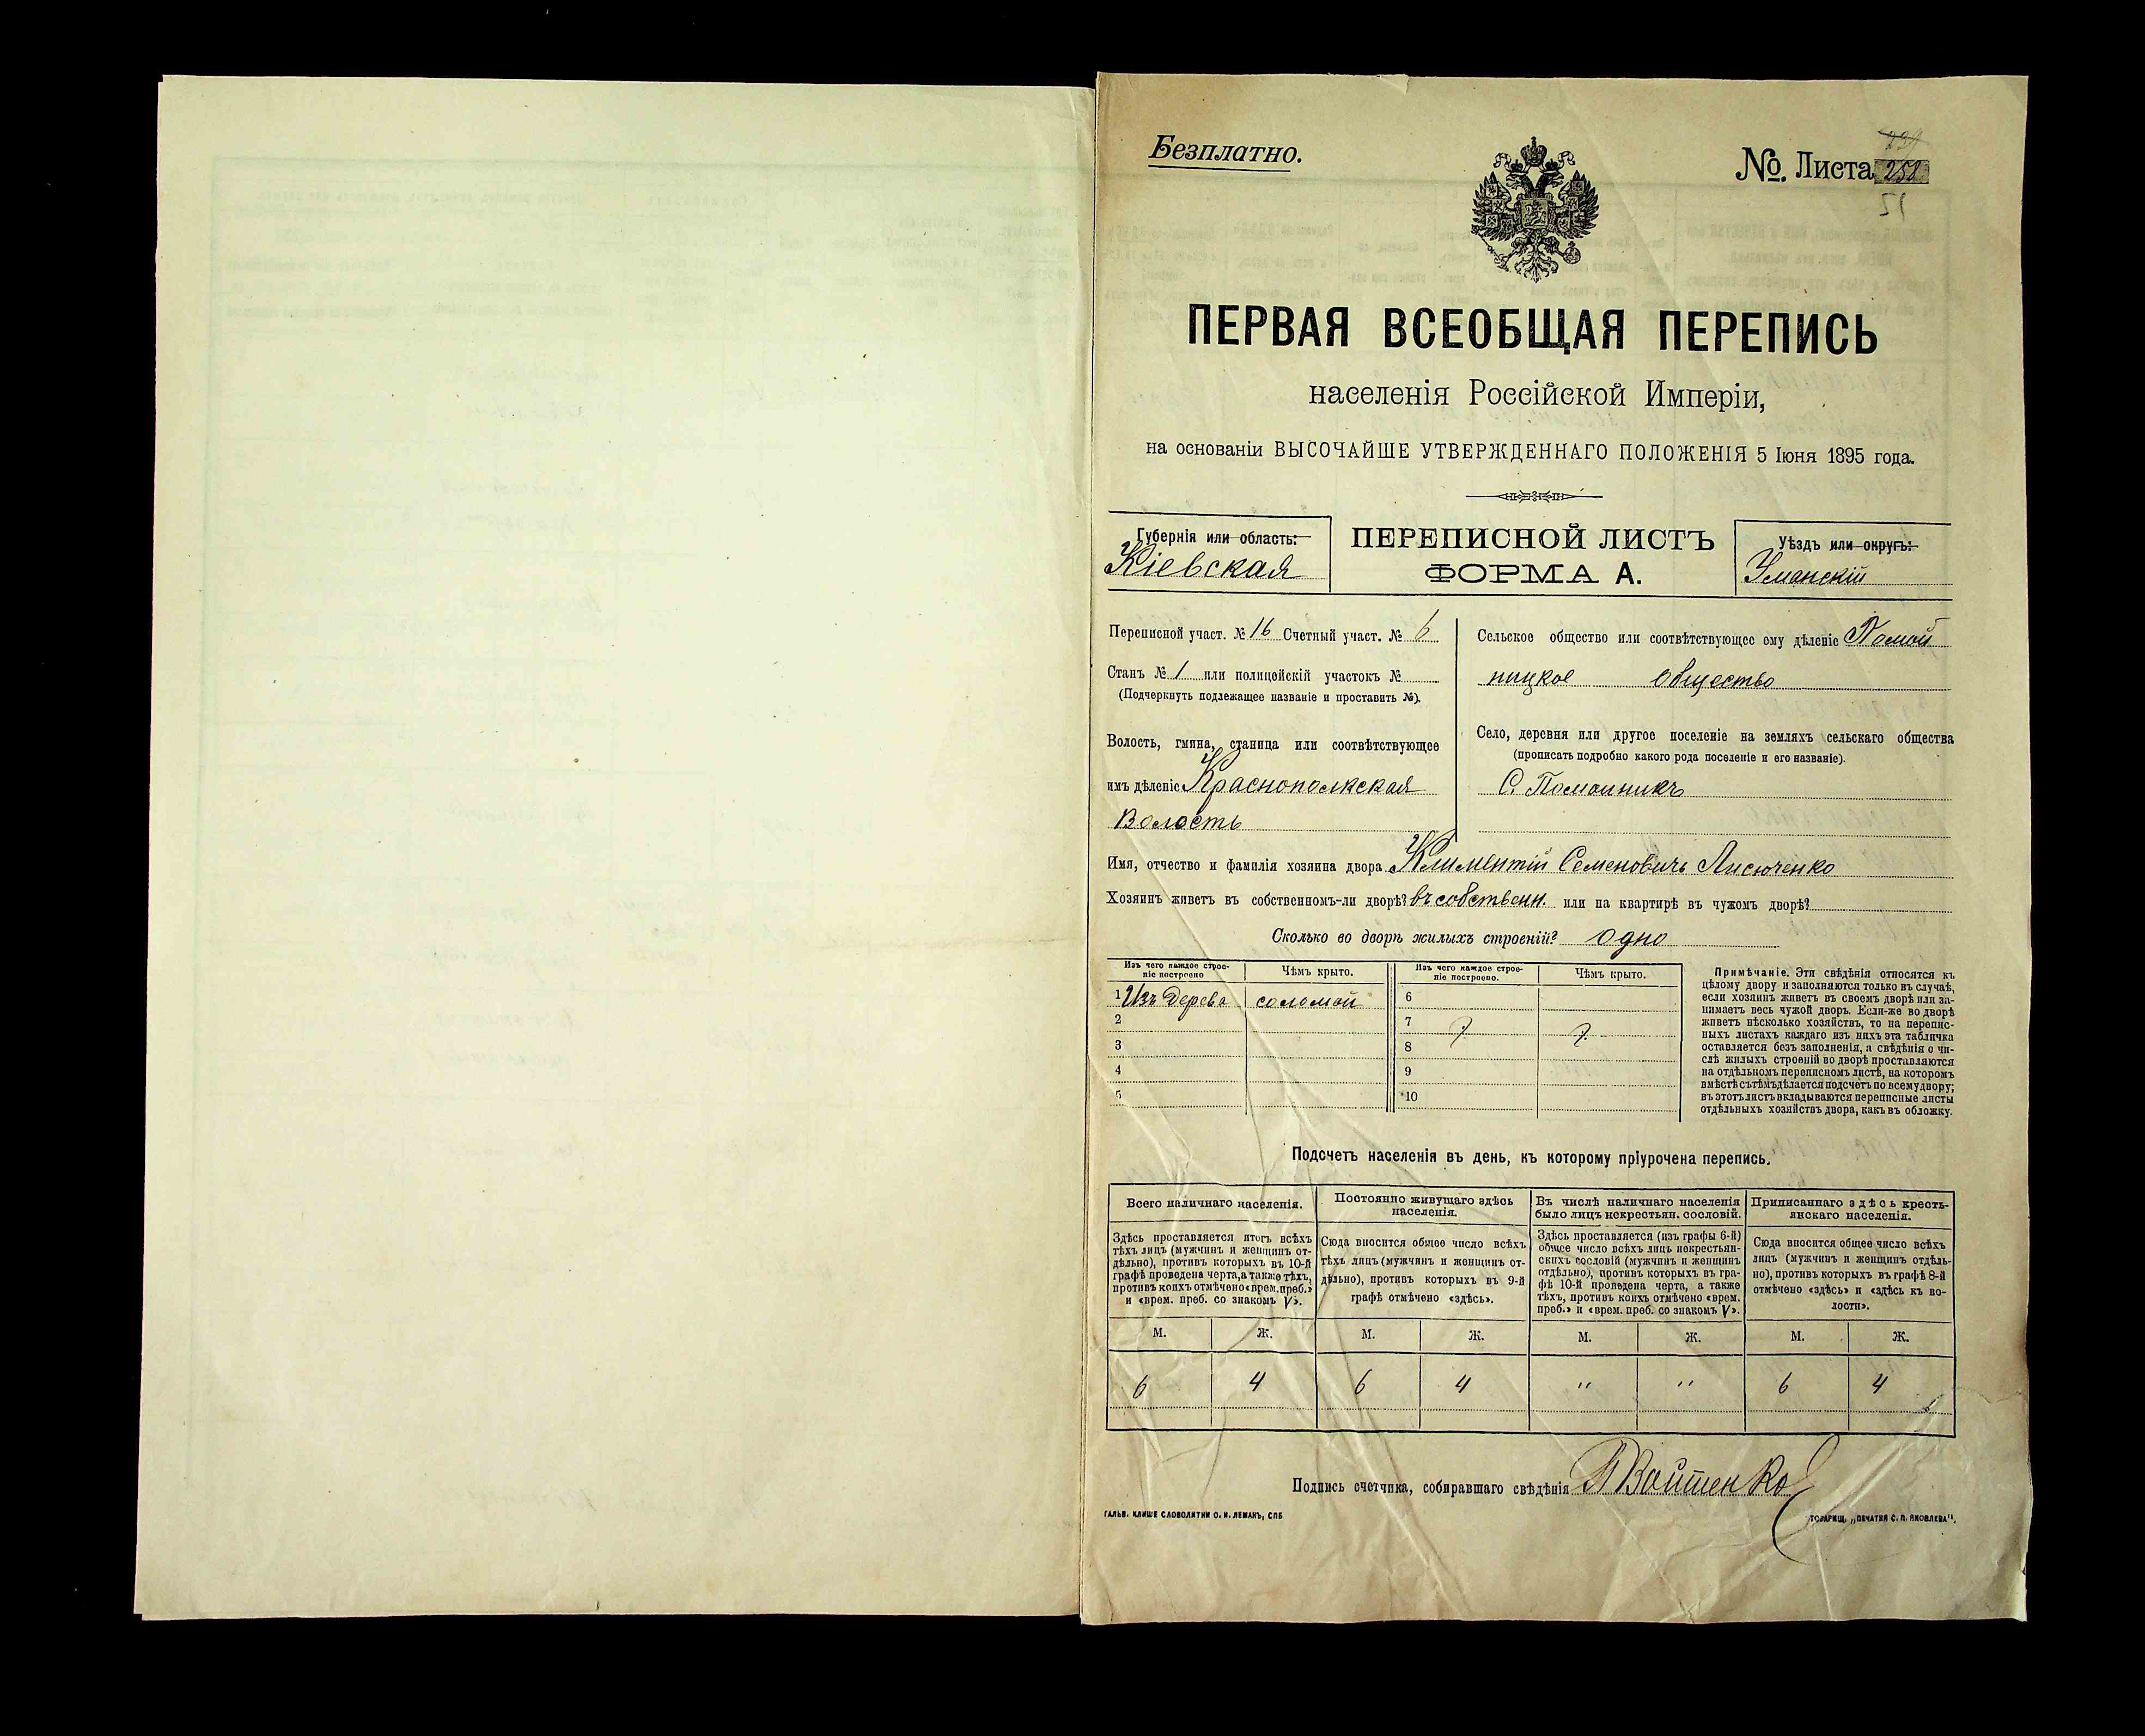 Безплатно.
№. Листа 258
ПЕРВАЯ ВСЕОБЩАЯ ПЕРЕПИСЬ
населенія Россійской Имперіи,
на основаніи ВЫСОЧАЙШЕ УТВЕРЖДЕННАГО ПОЛОЖЕНІЯ 5 Іюня 1895 года.
Губернія или область:
Кіевская
ПЕРЕПИСНОЙ ЛИСТЪ
ФОРМА А.
Уѣздъ или округъ:
Уманскій
Переписной участ. № 16 Счетный участ. № 6
Станъ № 1 или полицейскій участокъ №
(Подчеркнуть подлежащее названіе и проставить №).
Волость, гмина, станица или соотвѣтствующее
имъ дѣленіе Краснополкская
Волость
Сельское общество или соотвѣтствующее ему дѣленіе Помой
ницкое общество
Село, деревня или другое поселеніе на земляхъ сельскаго общества
(прописать подробно какого рода поселеніе и его названіе).
С. Помойникъ
Имя, отчество и фамилія хозяина двора Климентій Семеновичъ Лисюченко
Хозяинъ живетъ въ собственномъ-ли дворѣ? въ собственн. или на квартирѣ въ чужомъ дворѣ?
Сколько во дворѣ жилыхъ строеній? одно
Изъ чего каждое строе-
ніе построено
Чѣмъ крыто.
Изъ чего каждое строе-
ніе построено.
Чѣмъ крыто.
1 Изъ дерева соломой
2
3
4
5
6
7
8
9
10
Примѣчаніе. Эти свѣдѣнія относятся къ
цѣлому двору и заполняются только въ случаѣ,
если хозяинъ живетъ въ своемъ дворѣ или за-
нимаетъ весь чужой дворъ. Если-же во дворѣ
живетъ нѣсколько хозяйствъ, то на перепис-
ныхъ листахъ каждаго изъ нихъ эта табличка
оставляется безъ заполненія, а свѣдѣнія о чи-
слѣ жилыхъ строеній во дворѣ проставляются
на отдѣльномъ переписномъ листѣ, на которомъ
вмѣстѣ съ тѣмъ дѣлается подсчетъ по всему двору;
въ этотъ листъ вкладываются переписные листы
отдѣльныхъ хозяйствъ двора, какъ въ обложку.
Подсчетъ населенія въ день, къ которому пріурочена перепись.
Всего наличнаго населенія.
Здѣсь проставляется итогъ всѣхъ
тѣхъ лицъ (мужчинъ и женщинъ от-
дѣльно), противъ которыхъ въ 10-й
графѣ проведена черта, а также тѣхъ,
противъ коихъ отмѣчено «врем. преб.»
и «врем. преб. со знакомъ V».
Постоянно живущаго здѣсь
населенія.
Сюда вносится общее число всѣхъ
тѣхъ лицъ (мужчинъ и женщинъ от-
дѣльно), противъ которыхъ въ 9-й
графѣ отмѣчено «здѣсь».
Въ числѣ наличнаго населенія
было лицъ некрестьян. сословій.
Здѣсь проставляется (изъ графы 6-й)
общее число всѣхъ лицъ некрестьян-
скихъ сословій (мужчинъ и женщинъ
отдѣльно), противъ которыхъ въ гра-
фѣ 10-й проведена черта, а также
тѣхъ, противъ коихъ отмѣчено «врем.
преб.» и «врем. преб. со знакомъ V».
Приписаннаго здѣсь кресть-
янскаго населенія.
Сюда вносится общее число всѣхъ
лицъ (мужчинъ и женщинъ отдѣль-
но), противъ которыхъ въ графѣ 8-й
отмѣчено «здѣсь» и «здѣсь къ во-
лости».
М. Ж. М. Ж. М. Ж. М. Ж.
6 4 6 4 " " 6 4
Подпись счетчика, собиравшаго свѣдѣнія П Войтенко
ГАЛЬВ. КЛИШЕ СЛОВОЛИТНИ О. И. ЛЕМАНЪ, СПБ
ТОВАРИЩ. „ПЕЧАТНЯ С. П. ЯКОВЛЕВА".